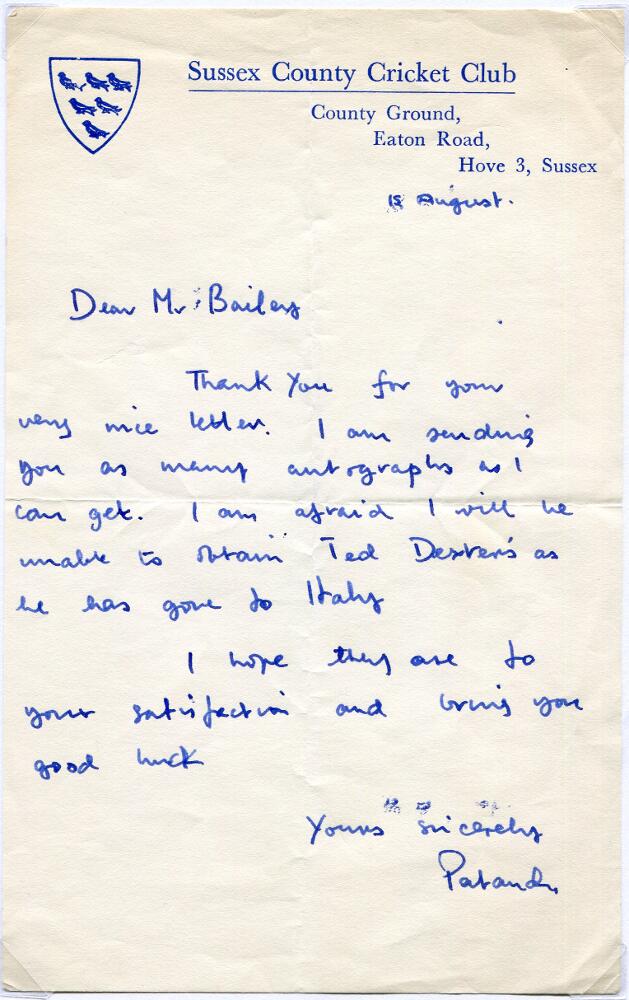 Sussex County Cricket Club
County Ground,
Eaton Road,
Hove 3, Sussex
15 August.
Dear Mr Bailey
Thank you for your
very nice letter. I am sending
you as many autographs as I
can get. I am afraid I will be
unable to obtain Ted Dexter's as
he has gone to Italy
I hope they are to
your satisfaction and bring you
good luck
Yours sincerely
Pataudi